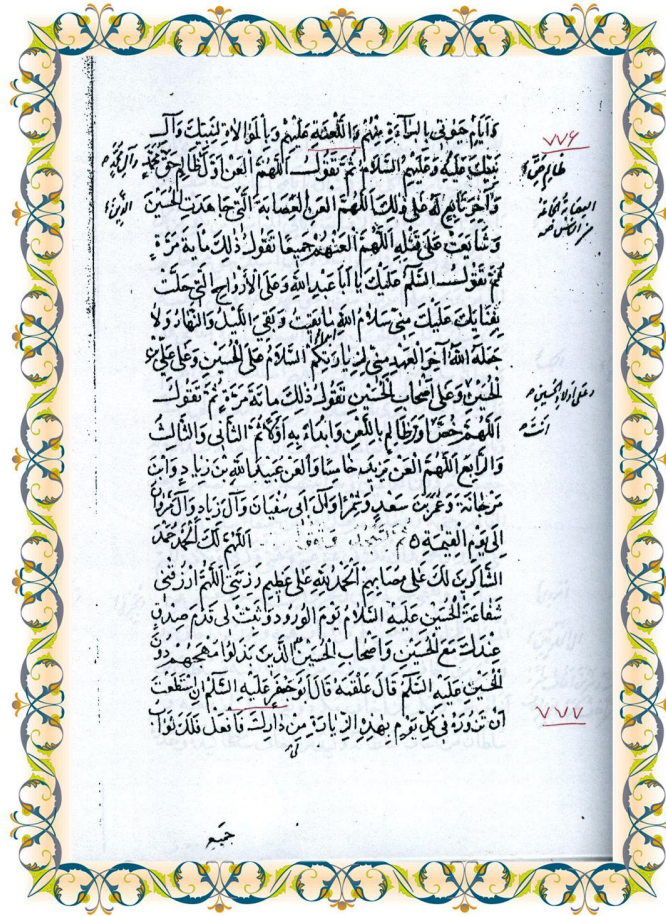 وَأَيَّامِ حَيَوتِي بِالْبَرَاءَةِ مِنْهُمْ وَاللَّعْنَةِ عَلَيْهِمْ وَبِالْمُوَالاةِ لِنَبِيِّكَ وَآلِ
٧٧٦
نَبِيِّكَ عَلَيْهِ وَعَلَيْهِمُ السَّلَامُ ثُمَّ تَقُولُ اَللّٰهُمَّ الْعَنْ اَوَّلَ ظَالِمٍ ظَلَمَ حَقَّ مُحَمَّدٍ وَآلِ مُحَمَّدٍ
وَآخِرَ تَابِعٍ لَهُ عَلَى ذٰلِكَ اَللّٰهُمَّ الْعَنِ الْعِصَابَةَ الَّتِي جَاهَدَتِ الْحُسَيْنَ
وَشَايَعَتْ عَلَى قَتْلِهِ اَللّٰهُمَّ الْعَنْهُمْ جَمِيعًا تَقُولُ ذٰلِكَ مِايَةَ مَرَّةٍ
ثُمَّ تَقُولُ السَّلَمُ عَلَيْكَ يَا اَبَا عَبْدِ اللّٰهِ وَعَلَى الْاَرْوَاحِ الَّتِي حَلَّتْ
بِفِنَائِكَ عَلَيْكَ مِنِّي سَلَامُ اللّٰهِ مَا بَقِيتُ وَبَقِيَ اللَّيْلُ وَالنَّهَارُ وَلَا
جَعَلَهُ اللّٰهُ آخِرَ الْعَهْدِ مِنِّي لِزِيَارَتِكُمْ السَّلَامُ عَلَى الْحُسَيْنِ وَعَلَى عَلِيِّ بْنِ
الْحُسَيْنِ وَعَلَى اَصْحَابِ الْحُسَيْنِ تَقُولُ ذٰلِكَ مِائَةَ مَرَّةٍ ثُمَّ تَقُولُ
وعلى أولاد الحسين
اَللّٰهُمَّ خُصَّ اَوَّلَ ظَالِمٍ بِاللَّعْنِ وَابْدَاءْ بِهِ اَوَّلًا ثُمَّ الثَّانِي وَالثَّالِثَ
انت
وَالرَّابِعَ اَللّٰهُمَّ الْعَنْ يَزِيدَ خَامِسًا وَالْعَنْ عُبَيْدَ اللّٰهِ بْنَ زِيَادٍ وَابْنَ
مَرْجَانَةَ وَعُمَرَ بْنَ سَعْدٍ وَشِمْرًا وَآلَ اَبِي سُفْيَانَ وَآلَ زِيَادٍ وَآلَ مَرْوَانَ
اِلَى يَوْمِ الْقِيمَةِ ثُمَّ اَللّٰهُمَّ لَكَ الْحَمْدُ حَمْدَ
الشَّاكِرِينَ لَكَ عَلَى مُصَابِهِمْ اَلْحَمْدُ لِلّٰهِ عَلَى عَظِيمِ رَزِيَّتِي اَللّٰهُمَّ ارْزُقْنِي
شَفَاعَةَ الْحُسَيْنِ عَلَيْهِ السَّلَامُ يَوْمَ الْوُرُودِ وَثَبِّتْ لِي قَدَمَ صِدْقٍ
عِنْدَكَ مَعَ الْحُسَيْنِ وَاَصْحَابِ الْحُسَيْنِ الَّذِينَ بَذَلُوا مُهَجَهُمْ دُونَ
الْحُسَيْنِ عَلَيْهِ السَّلَمُ قَالَ عَلْقَمَةُ قَالَ اَبُو جَعْفَرٍ عَلَيْهِ السَّلَمُ اِنِ اسْتَطَعْتَ
٧٧٧
اَنْ تَزُورَهُ فِي كُلِّ يَوْمٍ بِهٰذِهِ الزِّيَارَةِ مِنْ دَارِكَ فَافْعَلْ فَلَكَ ثَوَابُ
جميع